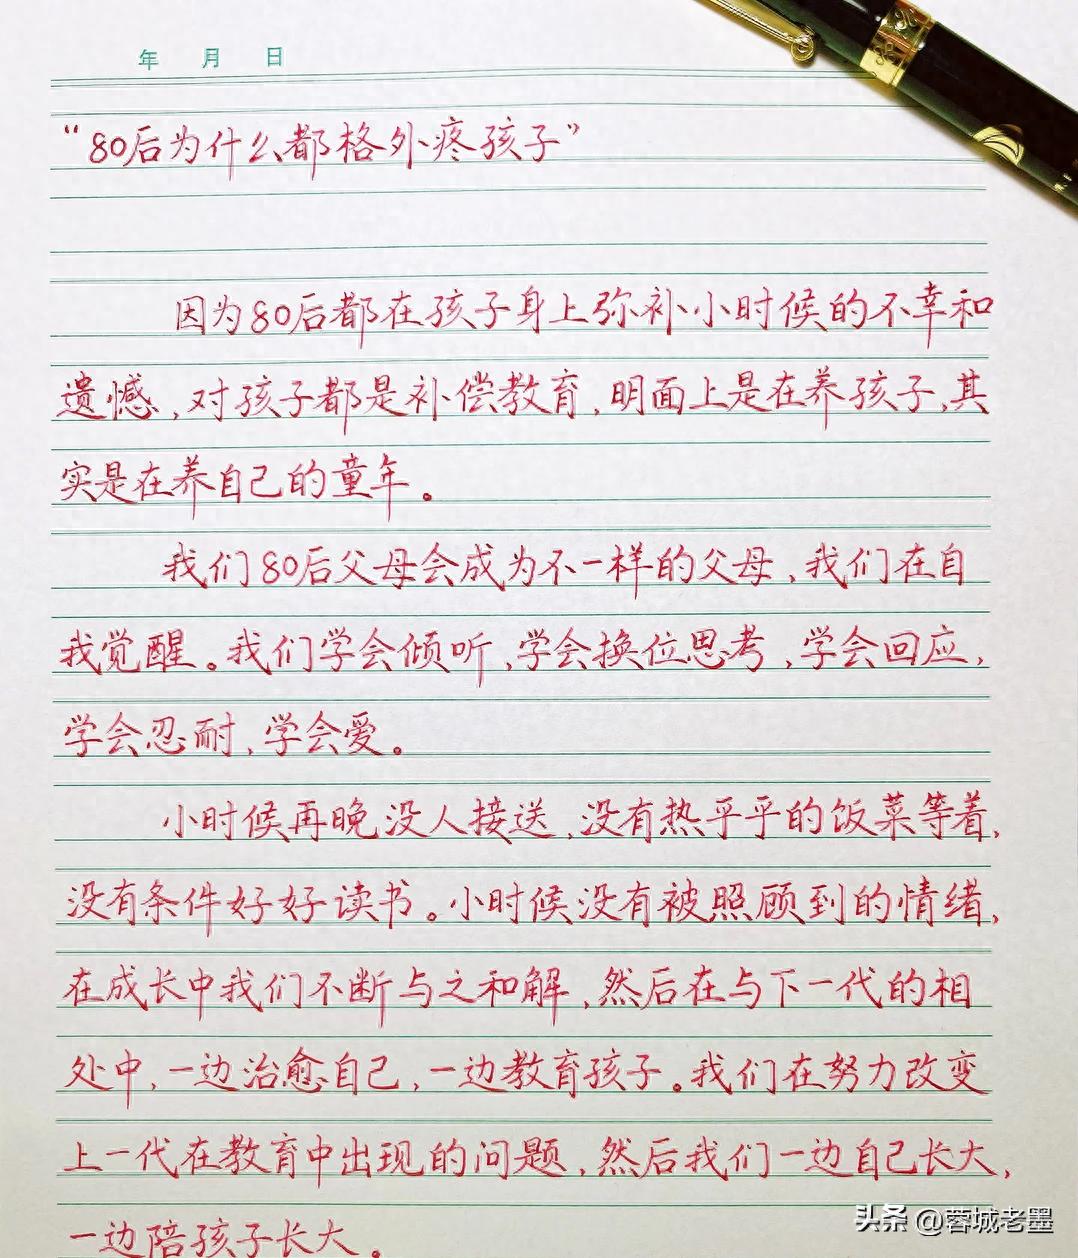 年 月 日
“80后为什么都格外疼孩子”
因为80后都在孩子身上弥补小时候的不幸和
遗憾,对孩子都是补偿教育,明面上是在养孩子,其
实是在养自己的童年。
我们80后父母会成为不一样的父母,我们在自
我觉醒。我们学会倾听,学会换位思考,学会回应,
学会忍耐,学会爱。
小时候再晚没人接送,没有热乎乎的饭菜等着,
没有条件好好读书。小时候没有被照顾到的情绪,
在成长中我们不断与之和解,然后在与下一代的相
处中,一边治愈自己,一边教育孩子。我们在努力改变
上一代在教育中出现的问题,然后我们一边自己长大,
一边陪孩子长大。
头条 @蓉城老墨